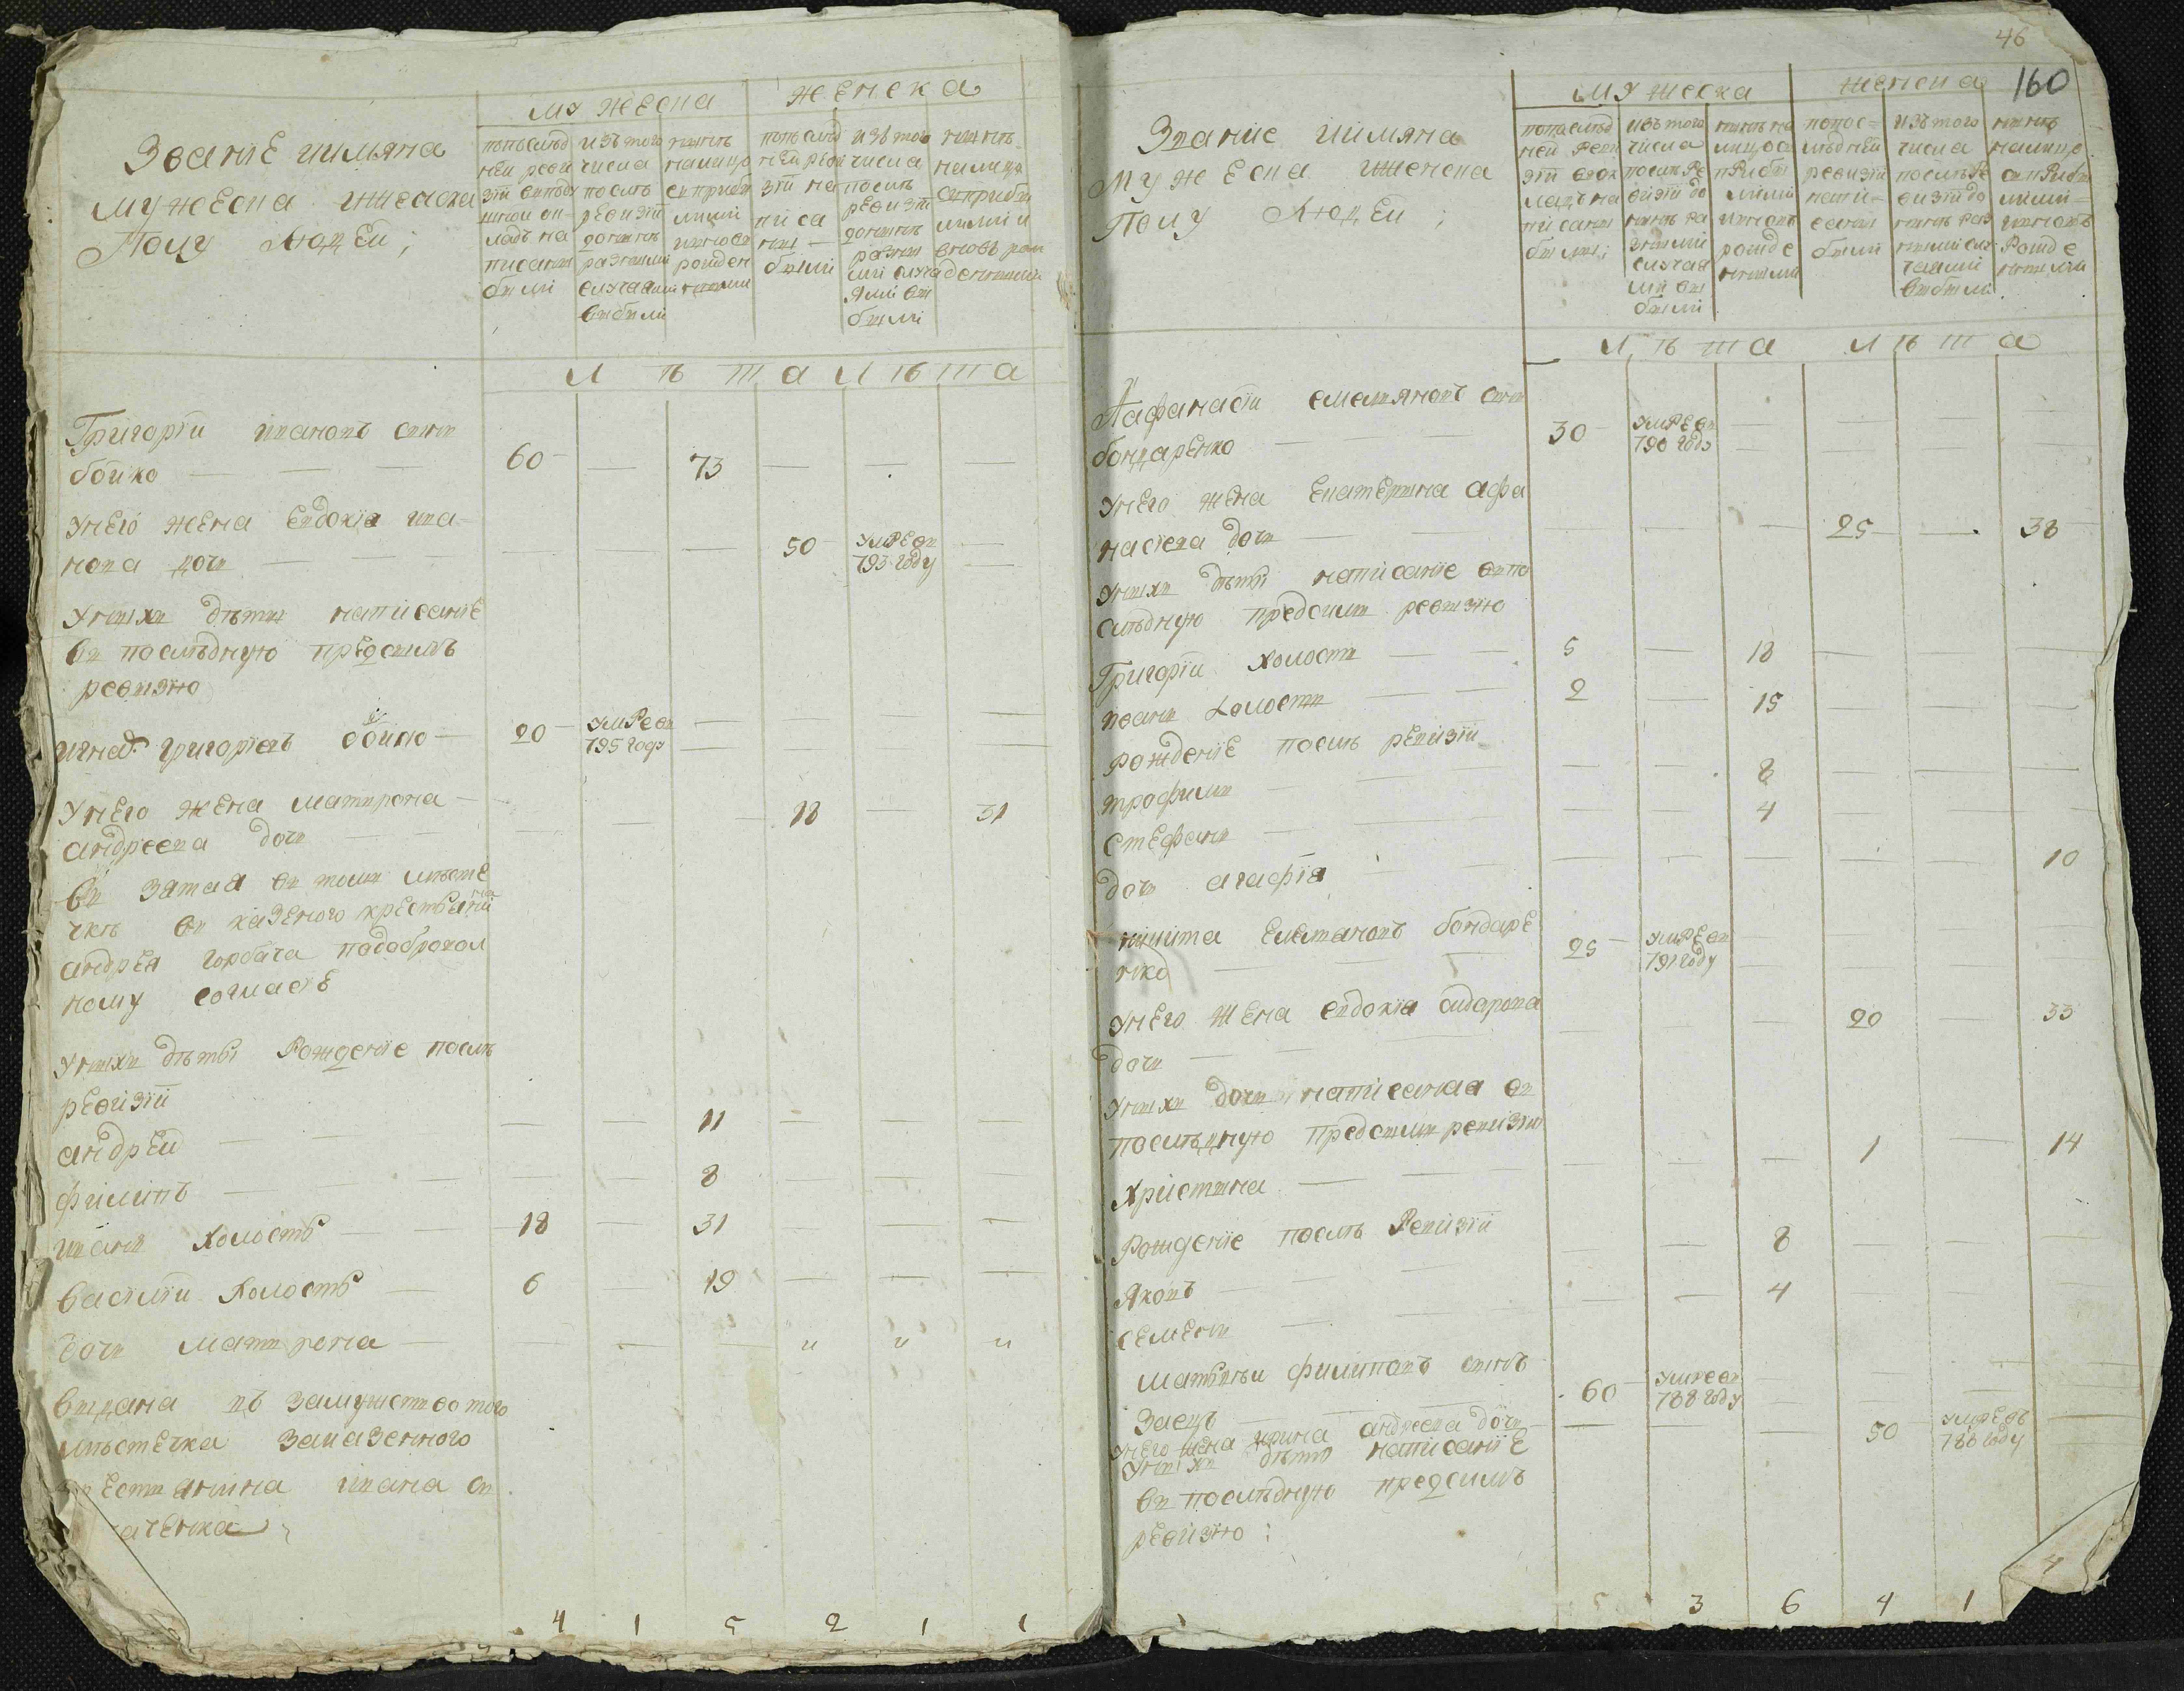 Звание иимяна
мужеска ижеэска
Полу людей;
мужеска
женска
попослед
ней реви
зіи
написаны
были
изътого
числа
после
ревизіи
разными
случаями
выбыли
ныне
налицо
сприбы
лыми
ивновь
рожден
ными
попослед
ней реви
зіи на
писа
ны
были
изътого
числа
после
ревизіи
разны
ми случа
ями вы
были
ныне
налицо
сприбы
лыми и
вновь рож
денными
лѣта лѣта
Григорій ивановъ сынъ
бойко — 60 — 73 — — —
унего жена евдокія ива
нова дочь — — — — 50 умре въ 793 году —
уныхъ дѣти написаніе
въ последную предсимъ
ревизію
игнат григориевъ бойко — 20 умре въ 795 году — — — —
унего жена матрона
андреева дочь — — — — 18 — 31
взятая въ томъ местѣ
чкѣ въ казеного крестьяніна
андрея горбача подоброхол
ному согласіе
уныхъ дѣти рожденіе послѣ
ревизіи
андрей — — — 11 — — —
филипъ — — — 8 — — —
иванъ холостъ — 18 — 31 — — —
василій холостъ — 6 — 19 — — —
дочь матрона — — — — " " "
выдана въ замужство того
мѣстечка заказенного
крестянина ивана

4 1 5 2 1 1
46
160
Звание иимяна
мужеска иженска
Полу людей;
мужеска
женска
попослед
ней реви
зіи въок
ладъ на
писаны
были;
изътого
числа
послѣ ре
визіи до
нынѣ ра
зными
случая
ми вы
были
нынѣ на
лицо с
прибы
лыми
ивновь
рожде
нными
попос=
лѣдней
ревизіи
напи=
саны
были
изътого
числа
послѣ ре
визіи до
нынѣ раз
ными слу
чаями
выбыли
нынѣ
налицо
сприбы
лыми=
ивновь
рожде
нными
лѣта лѣта
Аафанасій емеляновъ сынъ
бондаренко — 30 умре въ 790 годъ — — — —
унего жена екатерина афа
насіева дочь — — — — 25 — 38
уныхъ дѣти написаніе въ по
слѣдную предсимъ ревизію
Григорій холостъ — 5 — 18 — — —
иванъ холостъ — 2 — 15 — — —
рожденіе послѣ ревизіи
трофимъ — — — 8 — — —
стефанъ — — — 4 — — —
дочь агафія — — — — — — 10
никита емелановъ бондаре
нко — 25 умре въ 791 году — — — —
унего жена евдокія сидарова
дочь — — — — 20 — 33
уныхъ дочь написаная въ
послѣдную предсимъ ревизію
христина — — — — 1 — 14
рожденіе послѣ ревизіи
яковъ — — — 8 — — —
семенъ — — — 4 — — —
матвѣй филиповъ сынъ
заецъ — 60 умре въ 788 году — — — —
унего жена ирина андреева дочь — — — 50 умредъ 788 году —
уныхъ дѣти написаніе
въ послѣдную предсимъ
ревизію:
5 3 6 4 1 4